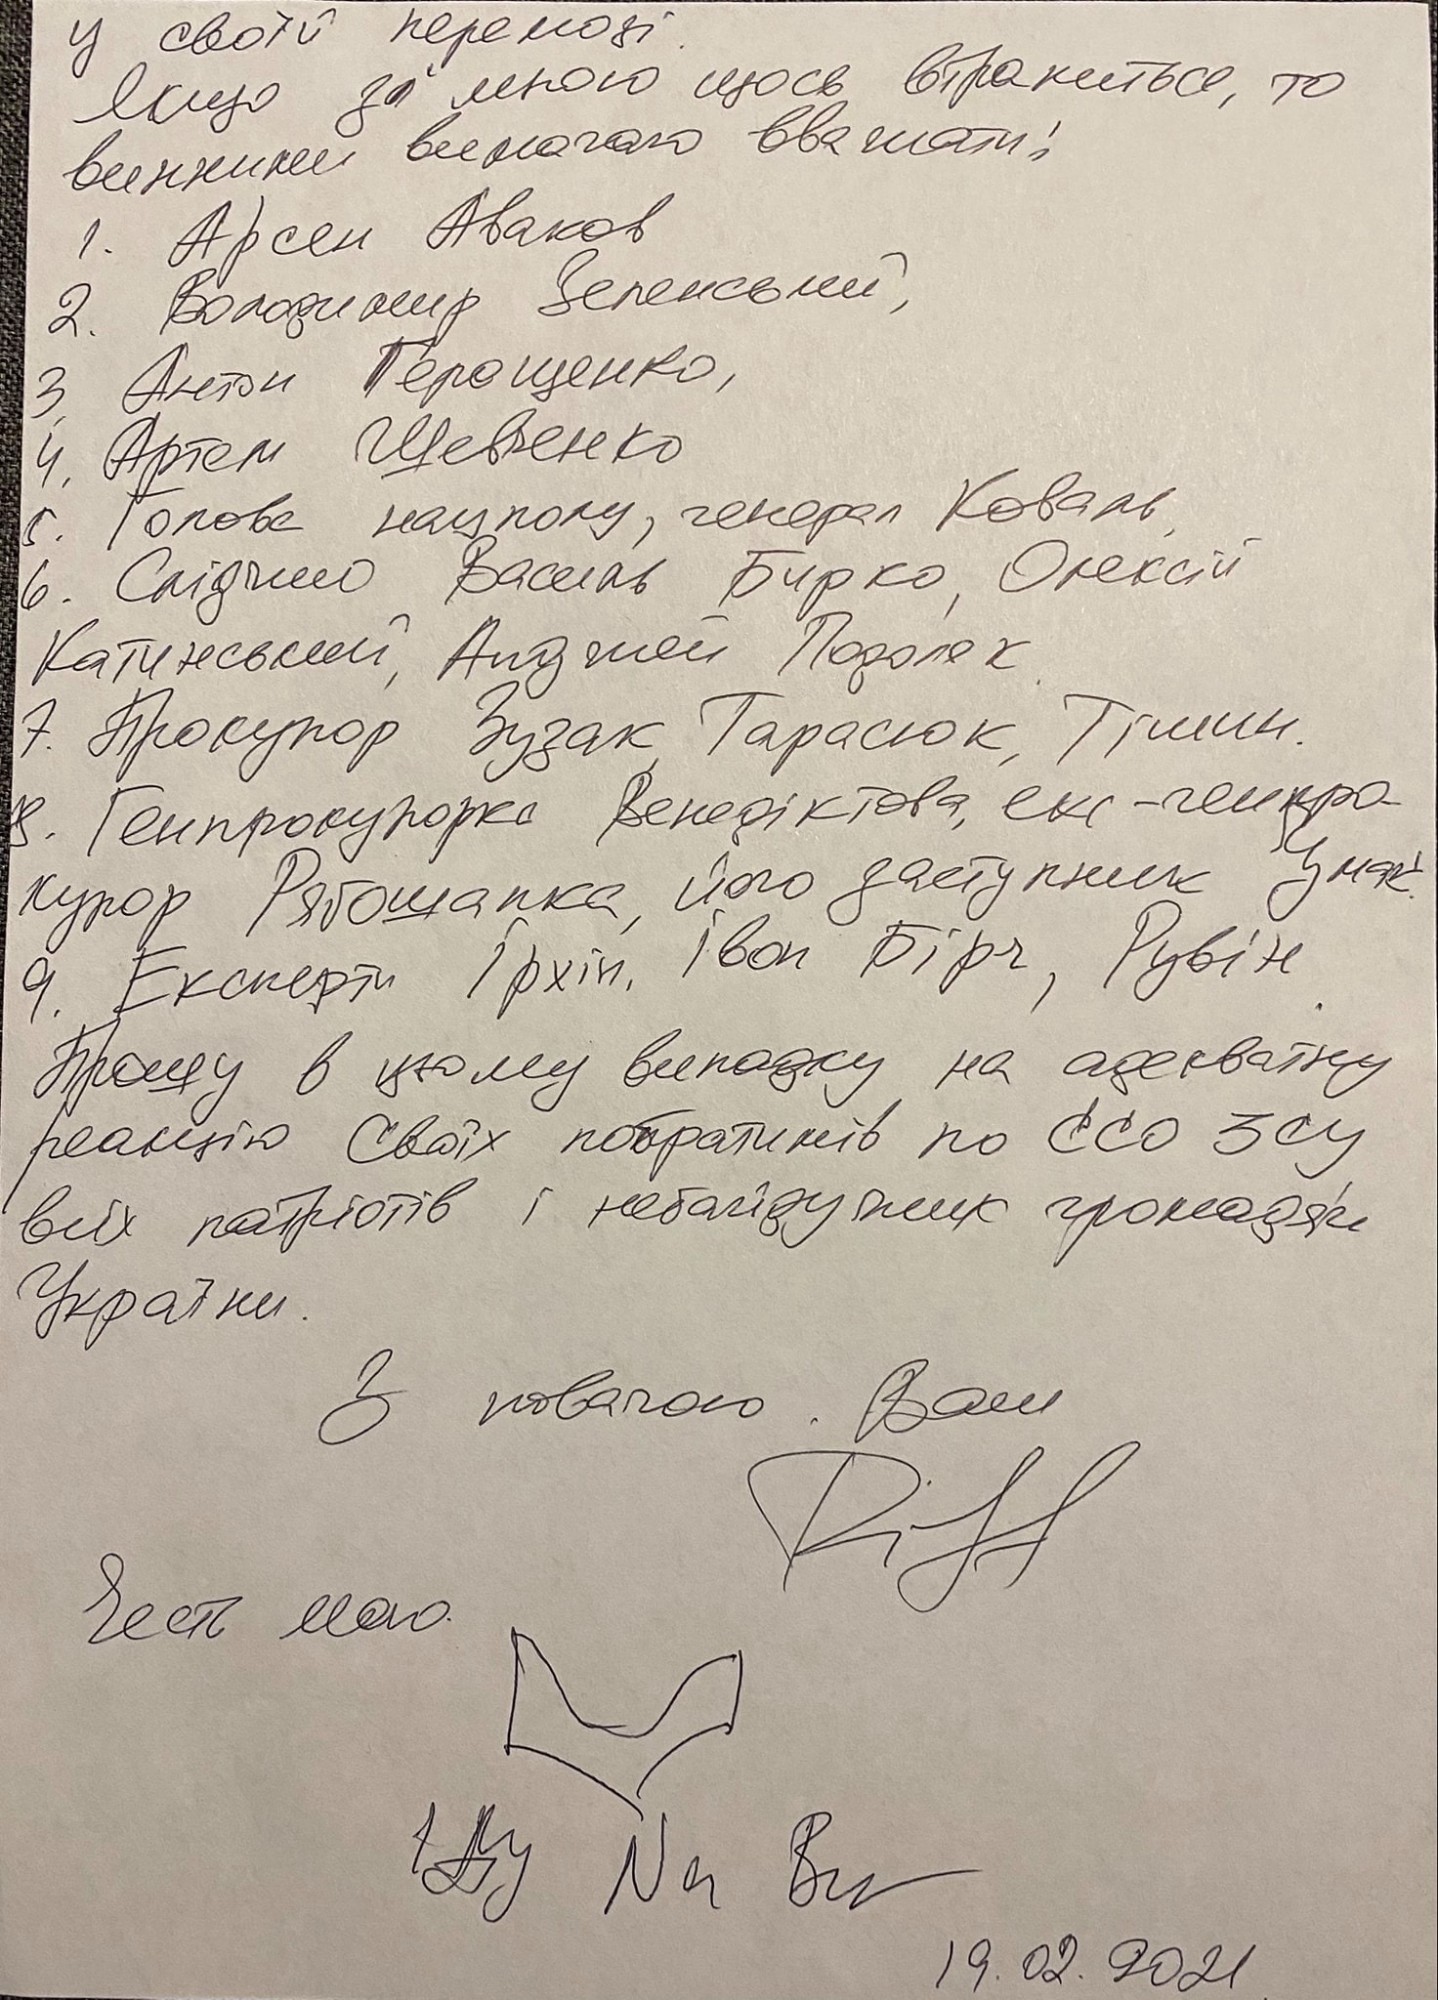 у своїй перемозі.
Якщо зі мною щось втрапиться, то
винними вимагаю вважати:
1. Арсен Аваков
2. Володимир Зеленський,
3. Антон Геращенко,
4. Артем Шевченко
5. Голова нацполу, генерал Коваль,
6. Слідчого Василь Бирко, Олексій
Катинський, Анджей Подоляк.
7. Прокурор Зузак, Тарасюк, Тімин.
8. Генпрокурорка Венедіктова, екс-генпро-
курор Рябошапка, його заступник
9. Експерти Ірхін, Івон Бірч, Рувін.
Прошу в цьому випадку на адекватну
реакцію своїх побратимів по ССО ЗСУ
всіх патріотів і небайдужих громадян
України.
З повагою. Ваш
Riff
Честь маю.
Іду На Ви
19.02.2021